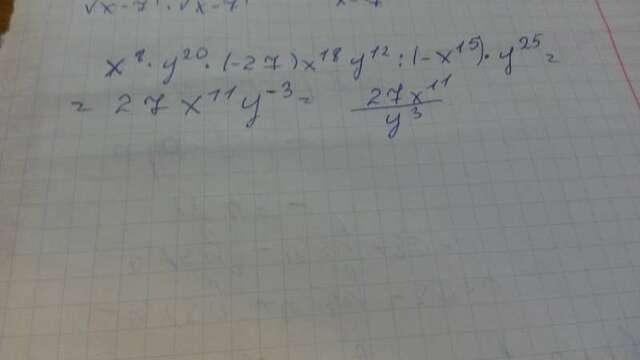 √x-7 · √x-7
x⁸ · y²⁰ · (-27)x¹⁸y¹² : (-x¹⁵) · y²⁵ =
= 27x¹¹y⁻³ = 27x¹¹/y³